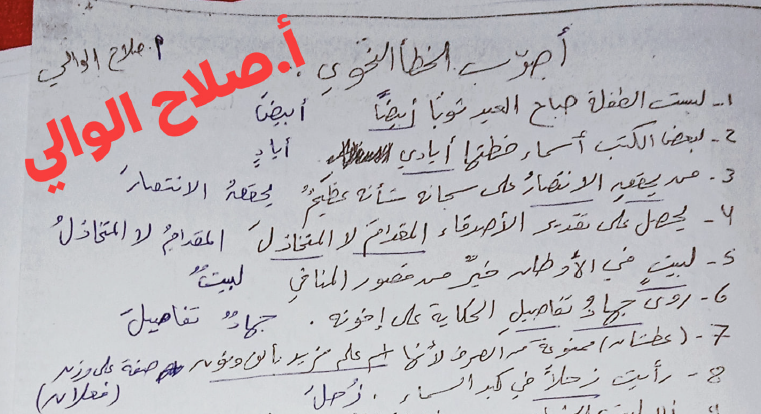 أ.صلاح الوالي
أصوّب الخطأ النحوي : أ. صلاح الوالي
1- لبست الطفلة صباح العيد ثوبًا أبيضًا أبيضَ
2- لبعض الكتب أسماء خطتها أيادي أيادٍ
3- من يحققهِ الانتصارُ على سجانه شأنه عظيمٌ يحققهُ الانتصارَ
4- يحصل على تقدير الأصدقاء المقدامَ لا المتخاذلَ المقدامُ لا المتخاذلُ
5- لبيتٍ في الأوطان خيرٌ من قصور المنافي لبيتٌ
6- روى جهادُ تفاصيلِ الحكاية على إخوته . جهادٌ تفاصيلَ
7- (عطشان) ممنوعة من الصرف لأنها اسم علم مزيد بألف ونون صفة على وزن (فعلان)
8- رأيت زحلاً في كبد السماء . زُحلَ